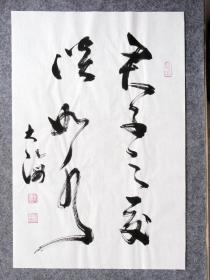 君子之交
淡如水
大海